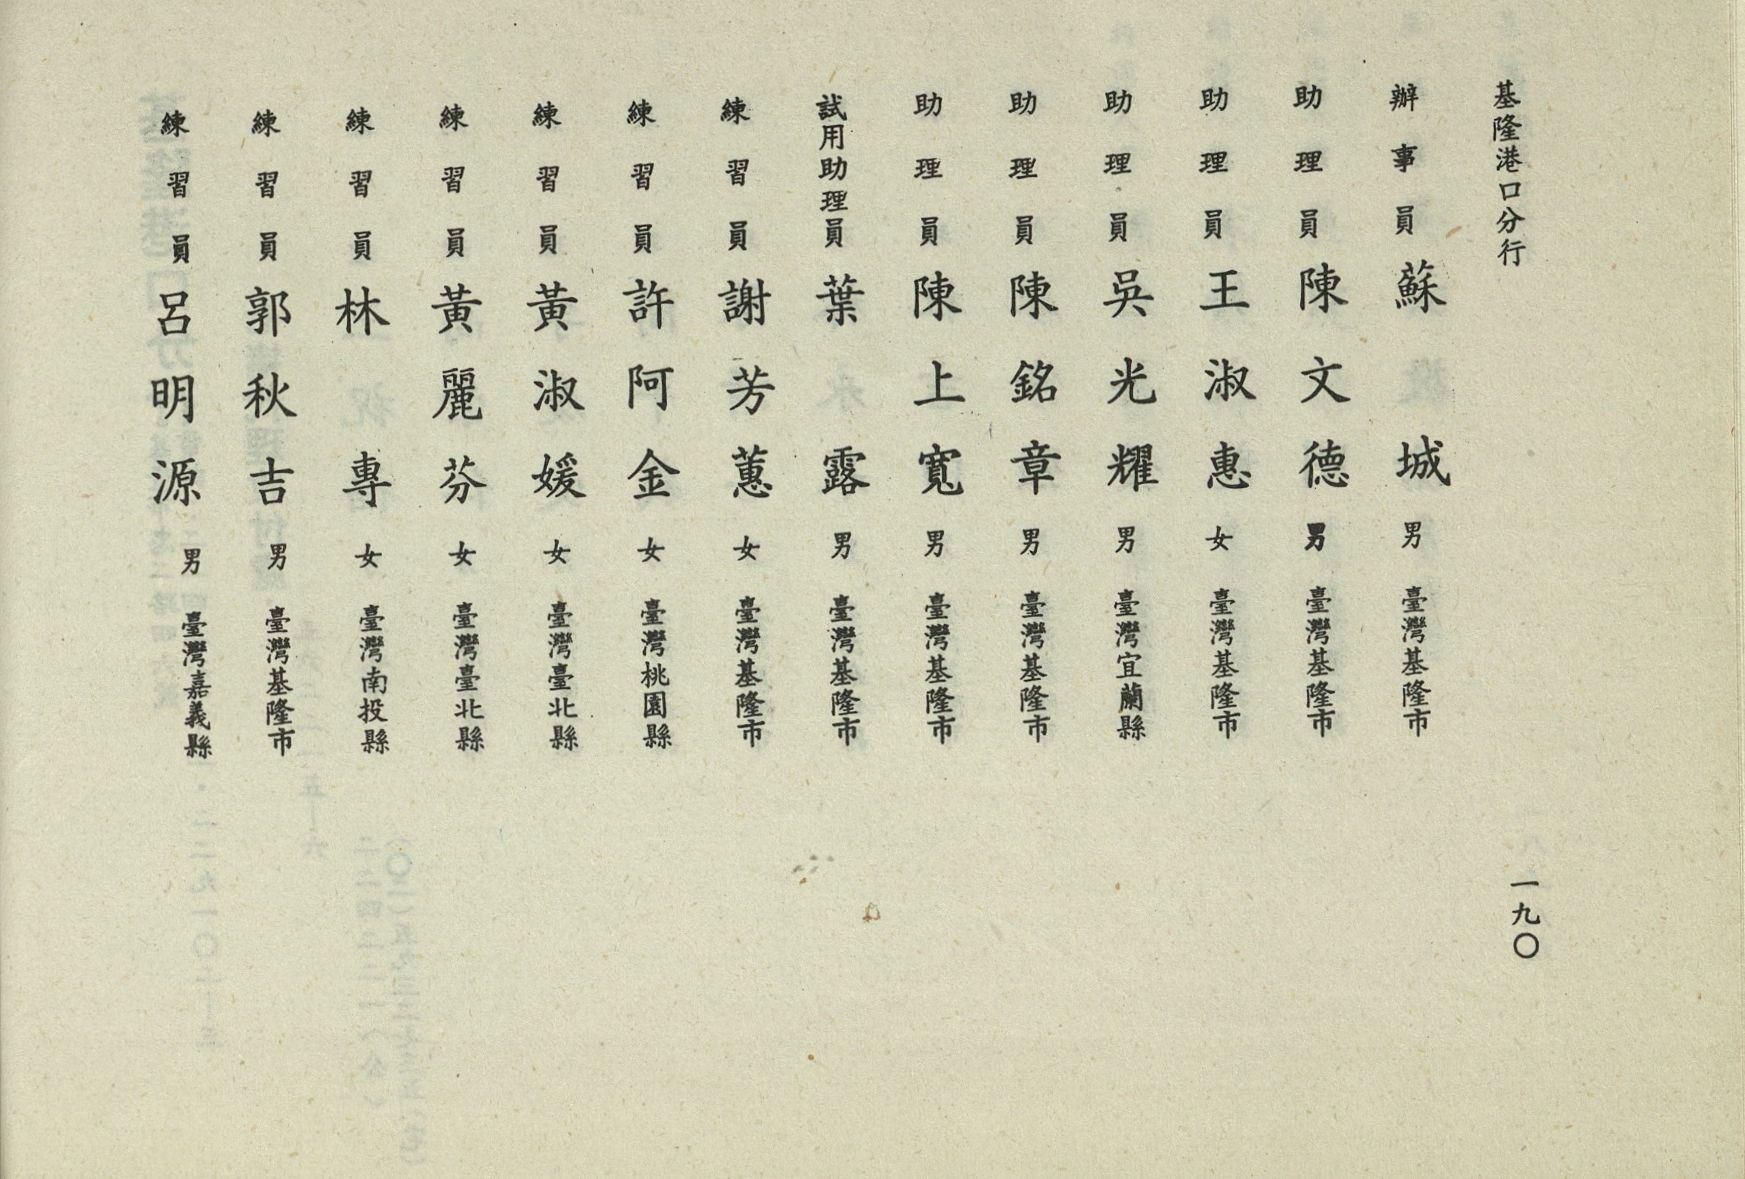 基隆港口分行
一九〇
辦事員 蘇城 男 臺灣基隆市
助理員 陳文德 男 臺灣基隆市
助理員 王淑惠 女 臺灣基隆市
助理員 吳光耀 男 臺灣宜蘭縣
助理員 陳銘章 男 臺灣基隆市
助理員 陳上寬 男 臺灣基隆市
試用助理員 葉露 男 臺灣基隆市
練習員 謝芳蕙 女 臺灣基隆市
練習員 許阿金 女 臺灣桃園縣
練習員 黃淑媛 女 臺灣臺北縣
練習員 黃麗芬 女 臺灣臺北縣
練習員 林專 女 臺灣南投縣
練習員 郭秋吉 男 臺灣基隆市
練習員 呂明源 男 臺灣嘉義縣